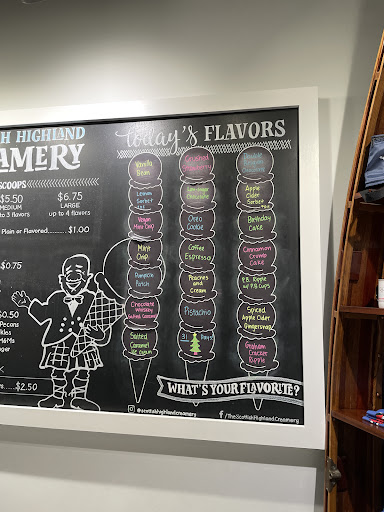 H HIGHLAND
AMERY
SCOOPS
$5.50
MEDIUM
to 3 flavors
$6.75
LARGE
up to 4 flavors
Plain or Flavored.......$1.00
$0.75
$0.50
Pecans
kles
M&Ms
$2.50
today's FLAVORS
Vanilla
Bean
Lemon
Sorbet
Vegan
Mint Chip
Mint
Chip
Pumpkin
Patch
Chocolate
Whiskey
Salted Caramel
Salted
Caramel
ice cream
Crushed
Strawberry
Chocolate
Oreo
Cookie
Coffee
Espresso
Peaches
and
Cream
Pistachio
31 Days
Double
Apple
Cider
Sorbet
Birthday
Cake
Cinnamon
Crumb
Cake
P.B. Ripple
w/ P.B Cups
Spiced
Apple Cider
Gingersnap
Graham
Cracker
Ripple
WHAT'S YOUR FAVORITE?
@scottishhighlandcreamery
/TheScottishHighlandCreamery